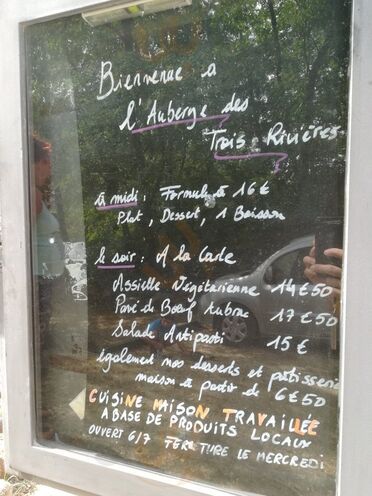 Bienvenue a
l'Auberge des
Trois Rivières
à midi : Formule à 16 €
Plat, Dessert, 1 Boisson
le soir : A la Carte
Assiette Végétarienne 14€50
Pavé de Bœuf Aubrac 17€50
Salade Antipasti 15 €
également nos desserts et pâtisserie
maison à partir de 6€50
CUISINE MAISON TRAVAILLÉE
A BASE DE PRODUITS LOCAUX
OUVERT 6/7 FERMETURE LE MERCREDI